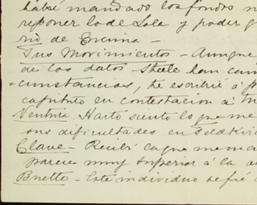 habé mandado los fondos n
reponer lo de Lola y poder g
rio de Encina -
Tus Movimientos - Aunque
de los datos Steele han cam
cunstancias, he escribir á p
capítulo en contestación á M
Ventura. Harto siento lo que me
sus dificultades en Beld
Clave - Recibí la que me ma
parece muy superior á la a
Bretto - Este individuo se fué a